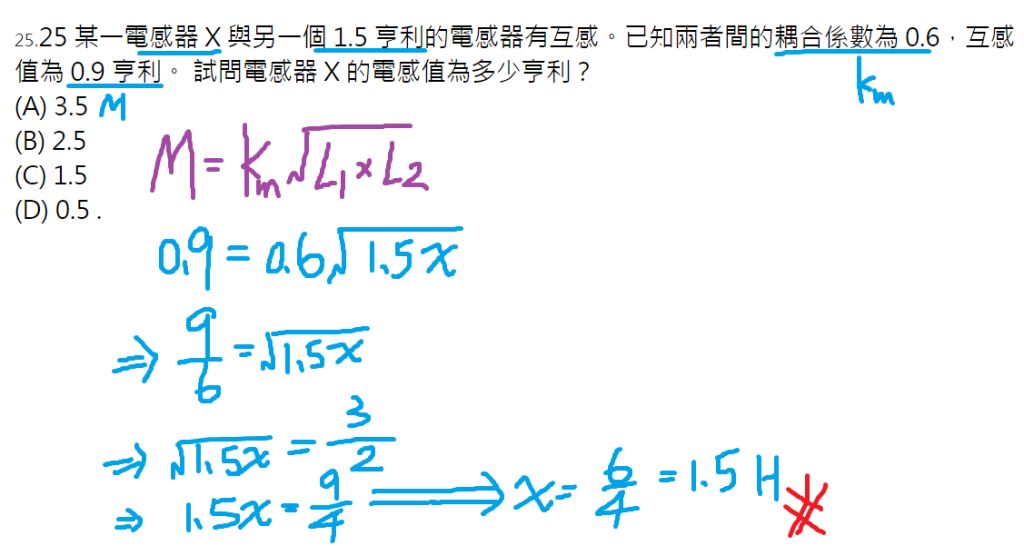 25.25 某一電感器 X 與另一個 1.5 亨利的電感器有互感。已知兩者間的耦合係數為 0.6,互感
值為 0.9 亨利。 試問電感器 X 的電感值為多少亨利?
(A) 3.5 M
km
(B) 2.5
(C) 1.5
(D) 0.5 .
M = km√L1×L2
0.9 = 0.6√1.5x
⇒ 9/6 = √1.5x
⇒ √1.5x = 3/2
⇒ 1.5x = 9/4 ⟹ x = 6/4 = 1.5 H